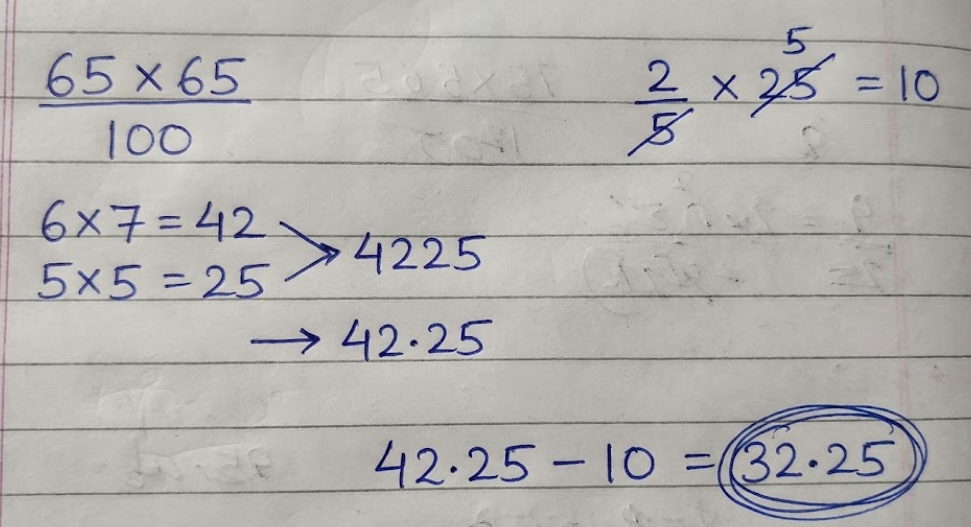 65 × 65
100
2/5 × 25 = 10
5
6 × 7 = 42
5 × 5 = 25
> 4225
→ 42.25
42.25 − 10 = 32.25